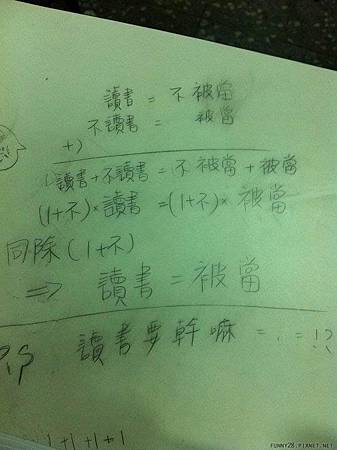 讀書 = 不 被當
不讀書 = 被當
+)
讀書+不讀書 = 不 被當 + 被當
(1+不)× 讀書 = (1+不)× 被當
同除 (1+不)
⇒ 讀書 = 被當
讀書要幹嘛 = . = !?
1+1+1+1
FUNNY28.PIXNET.NET